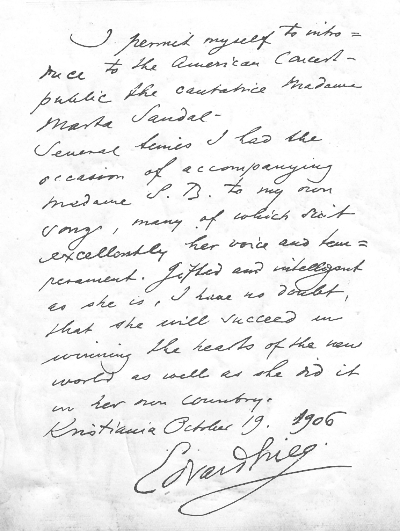 I permit myself to intro=
duce to the American Concert-
public the cantatrice Madame
Marta Sandal-
Several times I had the
occasion of accompanying
Madame S. B. to my own
songs, many of which suit
excellently her voice and tem=
perament. Gifted and intelligent
as she is, I have no doubt,
that she will succeed in
winning the hearts of the new
world as well as she did it
in her own country.
Kristiania October 19. 1906
Edvard Grieg.